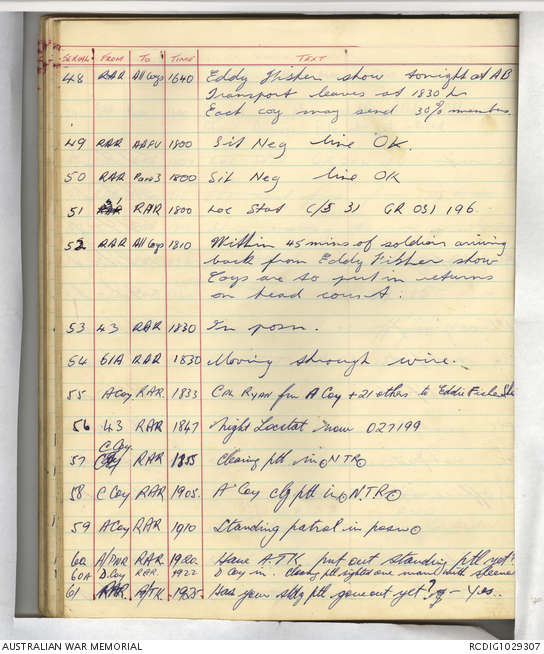 SERIAL FROM TO TIME TEXT
48 RAR All Coys 1640 Eddy Fisher show tonight at AB
Transport leaves at 1830 hr
Each coy may send 30% members.
49 RAR AAFU 1800 Sit Neg line OK.
50 RAR 1800 Sit Neg line OK
51 31 RAR 1800 Loc Stat C/S 31 GR 031 196
52 RAR All Coys 1810 Within 45 mins of soldier arriving
back from Eddy Fisher show
Coys are to put in returns
on head count.
53 43 RAR 1830 In posn.
54 61A RAR 1830 Moving through wire.
55 A Coy RAR 1833 CPL RYAN fm A Coy + 21 others to Eddie Fisher
56 43 RAR 1847 Night Locstat now 027199
57 C Coy RAR 1855 Clearing ptl in. NTR.
58 C Coy RAR 1905. A Coy clg ptl in. NTR.
59 A Coy RAR 1910 Standing patrol in posn.
60 RAR 1920 Have A.TK put out standing ptl yet?
60A D Coy RAR 1922 D Coy in. Clearing ptl sighted one man with
61 RAR A/TK 1925 Has your stdg ptl gone out yet? - Yes.
AUSTRALIAN WAR MEMORIAL
RCDIG1029307